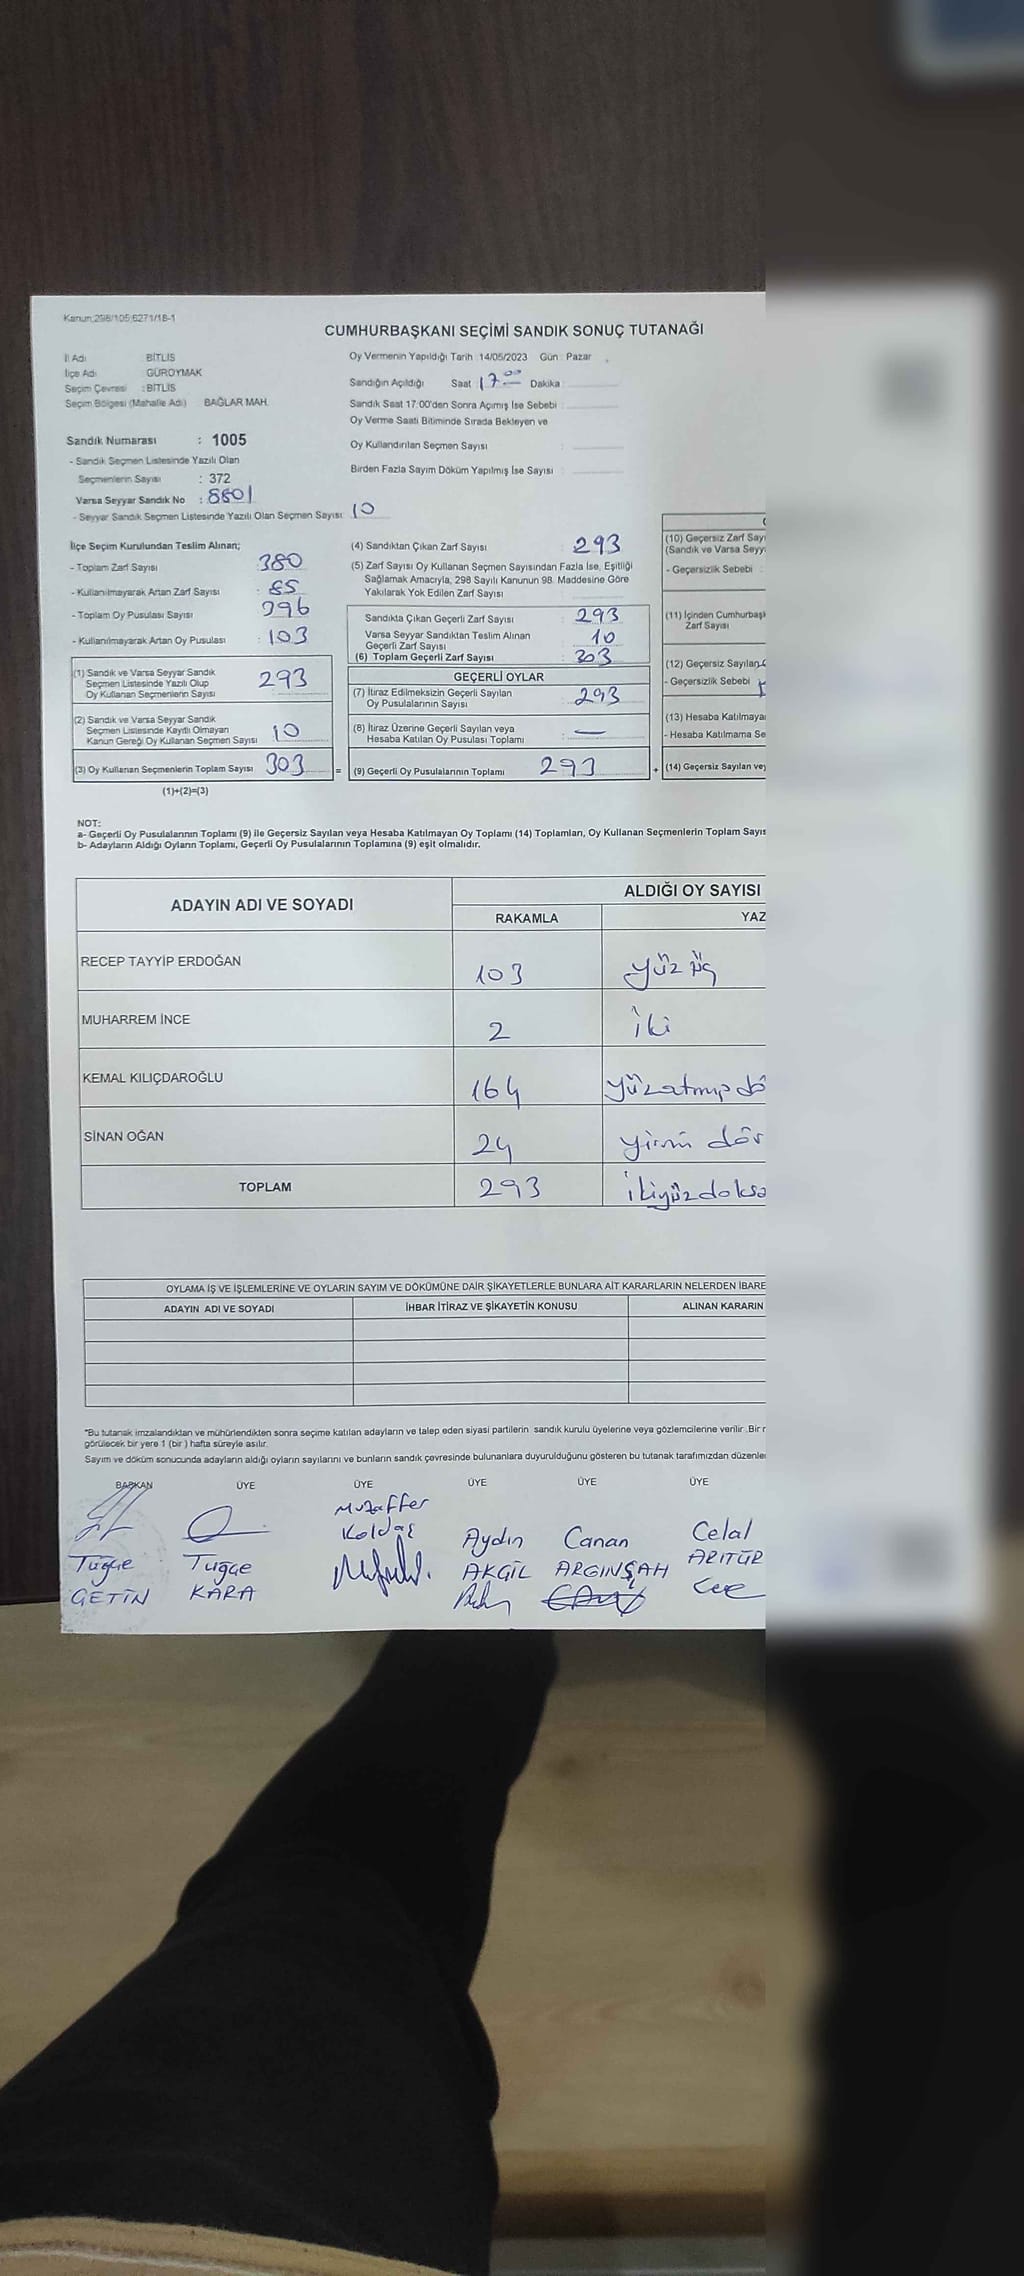 Kanun;298/105;6271/18-1
CUMHURBAŞKANI SEÇİMİ SANDIK SONUÇ TUTANAĞI
İl Adı BİTLİS
İlçe Adı GÜROYMAK
Seçim Çevresi : BİTLİS
Seçim Bölgesi (Mahalle Adı) BAĞLAR MAH.
Sandık Numarası : 1005
- Sandık Seçmen Listesinde Yazılı Olan
Seçmenlerin Sayısı : 372
Varsa Seyyar Sandık No : 8801
- Seyyar Sandık Seçmen Listesinde Yazılı Olan Seçmen Sayısı 10
Oy Vermenin Yapıldığı Tarih : 14/05/2023 Gün : Pazar
Sandığın Açıldığı Saat 17 00 Dakika
Sandık Saat 17:00'den Sonra Açımış İse Sebebi :
Oy Verme Saati Bitiminde Sırada Bekleyen ve
Oy Kullandırılan Seçmen Sayısı :
Birden Fazla Sayım Döküm Yapılmış İse Sayısı :
İlçe Seçim Kurulundan Teslim Alınan;
- Toplam Zarf Sayısı : 380
- Kullanılmayarak Artan Zarf Sayısı : 85
- Toplam Oy Pusulası Sayısı : 396
- Kullanılmayarak Artan Oy Pusulası : 103
(1) Sandık ve Varsa Seyyar Sandık
Seçmen Listesinde Yazılı Olup
Oy Kullanan Seçmenlerin Sayısı : 293
(2) Sandık ve Varsa Seyyar Sandık
Seçmen Listesinde Kayıtlı Olmayan
Kanun Gereği Oy Kullanan Seçmen Sayısı 10
(3) Oy Kullanan Seçmenlerin Toplam Sayısı 303 =
(1)+(2)=(3)
(4) Sandıktan Çıkan Zarf Sayısı : 293
(5) Zarf Sayısı Oy Kullanan Seçmen Sayısından Fazla İse, Eşitliği
Sağlamak Amacıyla, 298 Sayılı Kanunun 98. Maddesine Göre
Yakılarak Yok Edilen Zarf Sayısı :
Sandıkta Çıkan Geçerli Zarf Sayısı : 293
Varsa Seyyar Sandıktan Teslim Alınan
Geçerli Zarf Sayısı : 10
(6) Toplam Geçerli Zarf Sayısı : 303
GEÇERLİ OYLAR
(7) İtiraz Edilmeksizin Geçerli Sayılan
Oy Pusulalarının Sayısı : 293
(8) İtiraz Üzerine Geçerli Sayılan veya
Hesaba Katılan Oy Pusulası Toplamı : —
(9) Geçerli Oy Pusulalarının Toplamı 293 +
(10) Geçersiz Zarf Sayı
(Sandık ve Varsa Seyy
- Geçersizlik Sebebi :
(11) İçinden Cumhurbaşk
Zarf Sayısı
(12) Geçersiz Sayılan
- Geçersizlik Sebebi
(13) Hesaba Katılmaya
- Hesaba Katılmama Se
(14) Geçersiz Sayılan vey
NOT:
a- Geçerli Oy Pusulalarının Toplamı (9) ile Geçersiz Sayılan veya Hesaba Katılmayan Oy Toplamı (14) Toplamları, Oy Kullanan Seçmenlerin Toplam Sayıs
b- Adayların Aldığı Oyların Toplamı, Geçerli Oy Pusulalarının Toplamına (9) eşit olmalıdır.
ADAYIN ADI VE SOYADI ALDIĞI OY SAYISI
RAKAMLA YAZ
RECEP TAYYİP ERDOĞAN 103 yüz üç
MUHARREM İNCE 2 iki
KEMAL KILIÇDAROĞLU 164 yüzatmışdö
SİNAN OĞAN 24 yirmi dör
TOPLAM 293 ikiyüzdoksa
OYLAMA İŞ VE İŞLEMLERİNE VE OYLARIN SAYIM VE DÖKÜMÜNE DAİR ŞİKAYETLERLE BUNLARA AİT KARARLARIN NELERDEN İBARE
ADAYIN ADI VE SOYADI İHBAR İTİRAZ VE ŞİKAYETİN KONUSU ALINAN KARARIN
*Bu tutanak imzalandıktan ve mühürlendikten sonra seçime katılan adayların ve talep eden siyasi partilerin sandık kurulu üyelerine veya gözlemcilerine verilir. Bir n
görülecek bir yere 1 (bir) hafta süreyle asılır.
Sayım ve döküm sonucunda adayların aldığı oyların sayılarını ve bunların sandık çevresinde bulunanlara duyurulduğunu gösteren bu tutanak tarafımızdan düzenle
BAŞKAN ÜYE ÜYE ÜYE ÜYE ÜYE
Tuğçe ÇETİN
Tuğçe KARA
Muzaffer Koldaş
Aydın AKGİL
Canan ARGINŞAH
Celal ARITÜR